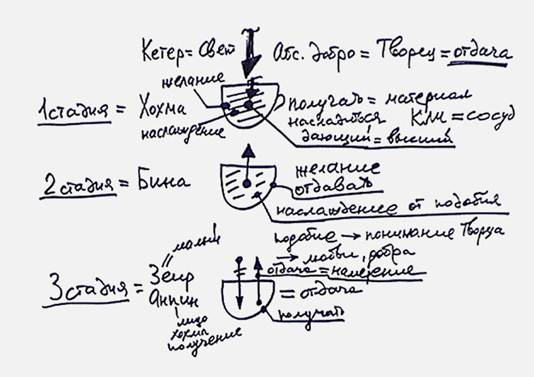 Кетер = Свет Абс. добро = Творец = отдача
желание
1 стадия = Хохма
наслаждение
получать = материал
насладиться Кли = сосуд
дающий = высший
2 стадия = Бина
желание
отдавать
наслаждение от подобия
подобие → понимание Творца
→ любви, добра
отдача = намерение
малый
3 стадия = Зеир
Анпин
= отдача
получать
лицо
хохма
получение